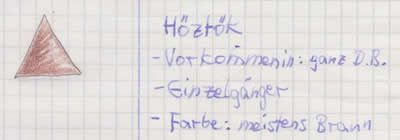 Höztök
- Vorkommenin: ganz D.B.
- Einzelgänger
- Farbe: meistens Braun